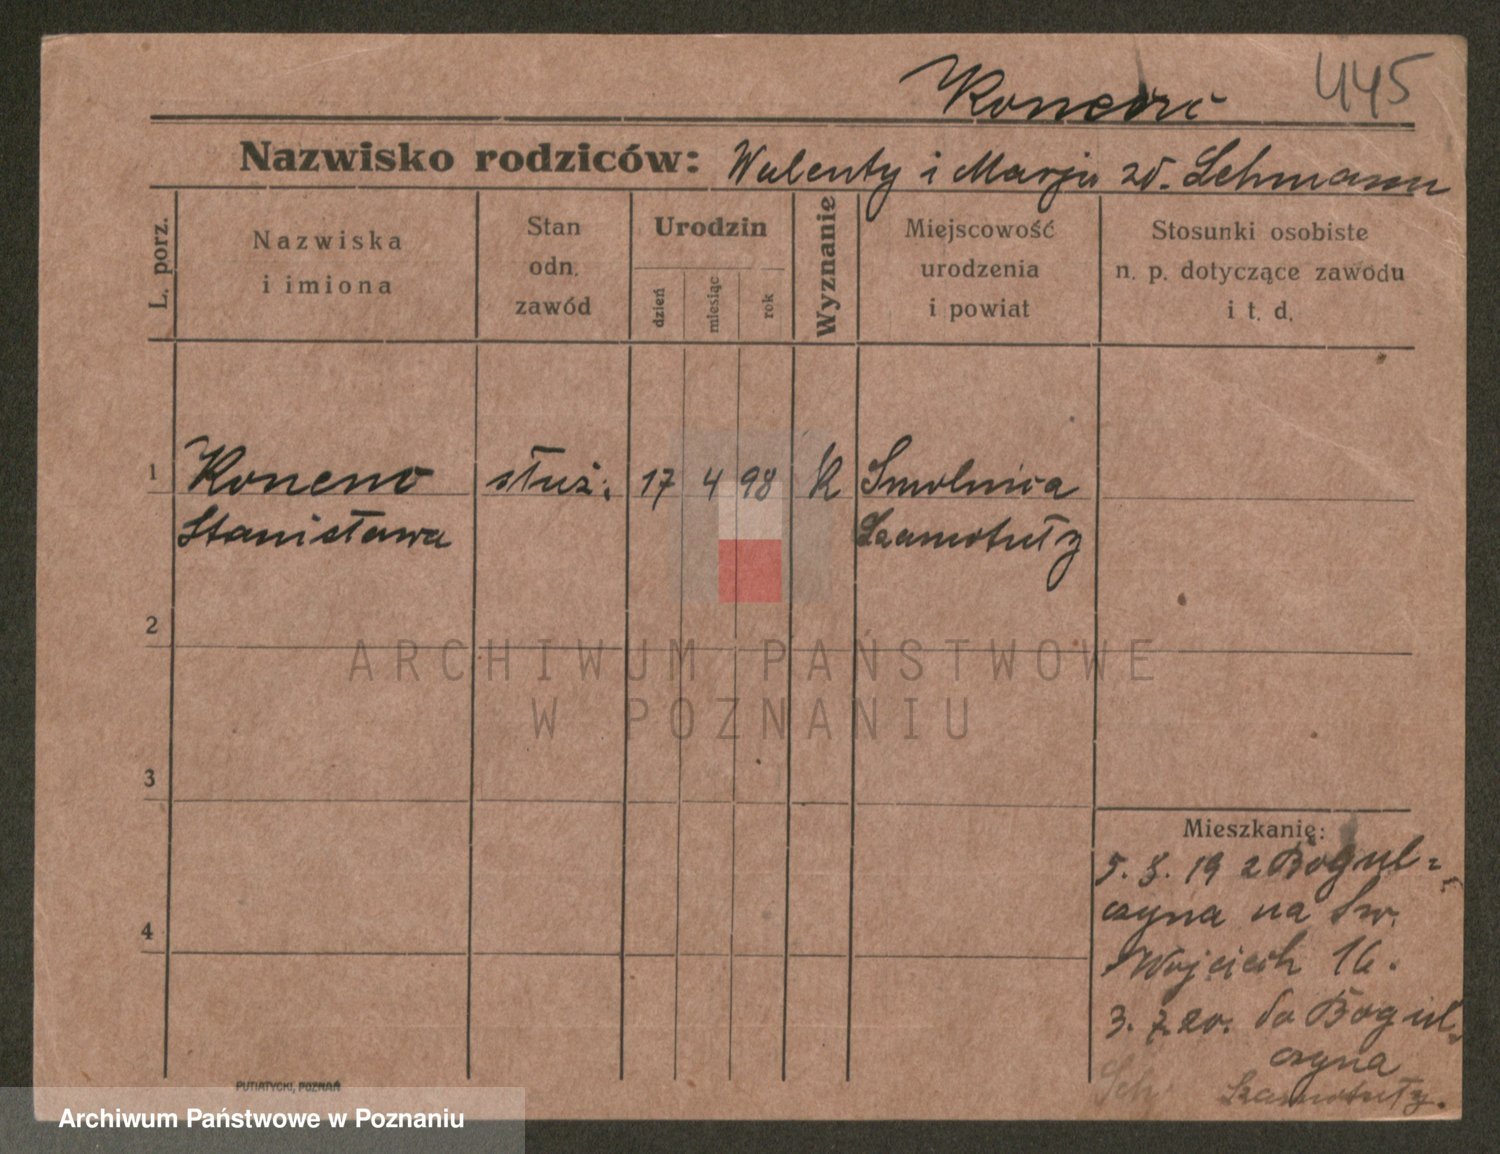 445
Nazwisko rodziców: Walenty i Marja zd. Lehmann
L. porz.
Nazwiska
i imiona
Stan
odn.
zawód
Urodzin
dzień
miesiąc
rok
Wyznanie
Miejscowość
urodzenia
i powiat
Stosunki osobiste
n. p. dotyczące zawodu
i t. d.
1 służ. 17 4 98 K Smolnica
Stanisława Szamotuły
2
ARCHIWUM PAŃSTWOWE
W POZNANIU
3
Mieszkanie:
5. 3. 19 z Bogul-
czyna na Św.
Wojciech 16.
4
3. 7. 20. do Bogul-
czyna
Szamotuły.
PUTIATYCKI, POZNAŃ
Archiwum Państwowe w Poznaniu